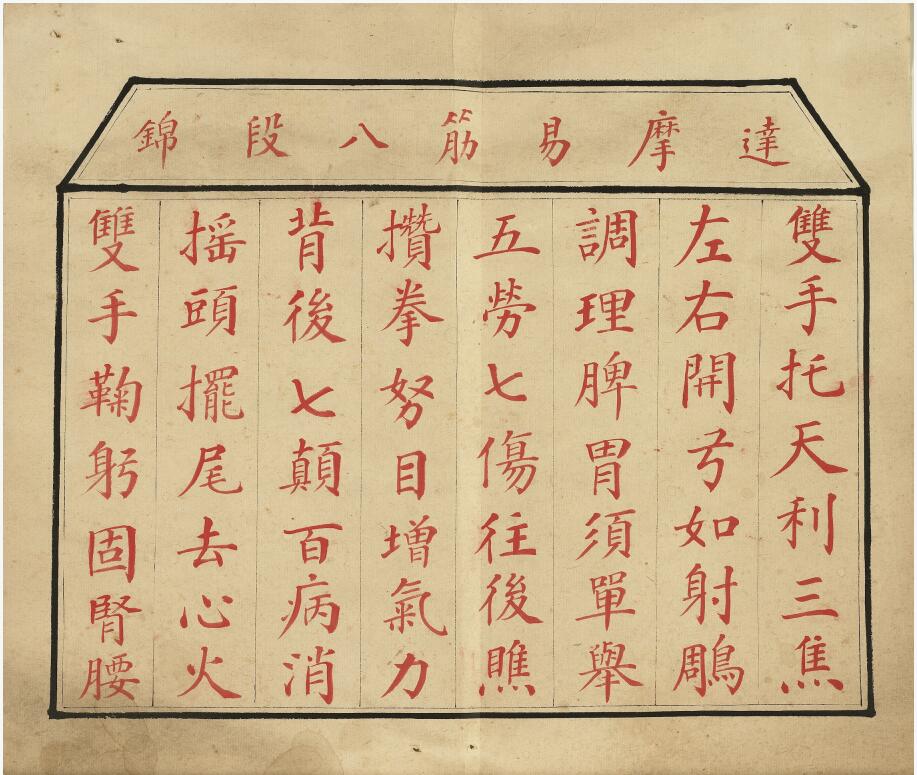 達摩易筋八段錦
雙手托天利三焦
左右開弓如射鵰
調理脾胃須單舉
五勞七傷往後瞧
攢拳努目增氣力
背後七顛百病消
摇頭擺尾去心火
雙手鞠躬固腎腰